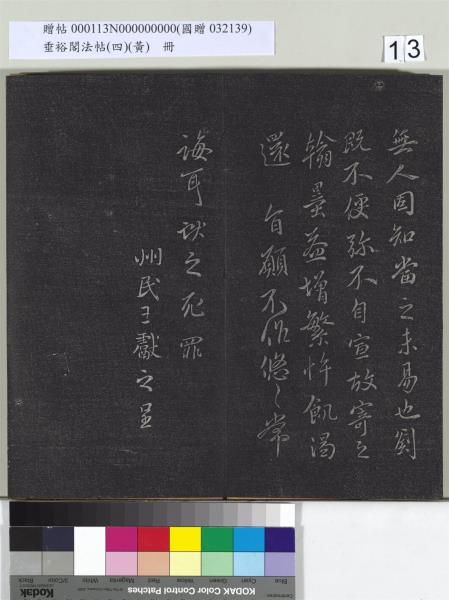 贈帖 000113N000000000(國贈 032139)
垂裕閣法帖(四)(黃)　冊
13
無人固知當之未易也劉
既不便弥不自宣故寄之
翰墨益增繁忤飢渴
還 旨願不作悠悠常
誨耳獻之死罪
州民王獻之呈
Blue Cyan Green Yellow Red Magenta White 3/Color Black
KODAK Color Control Patches
Kodak